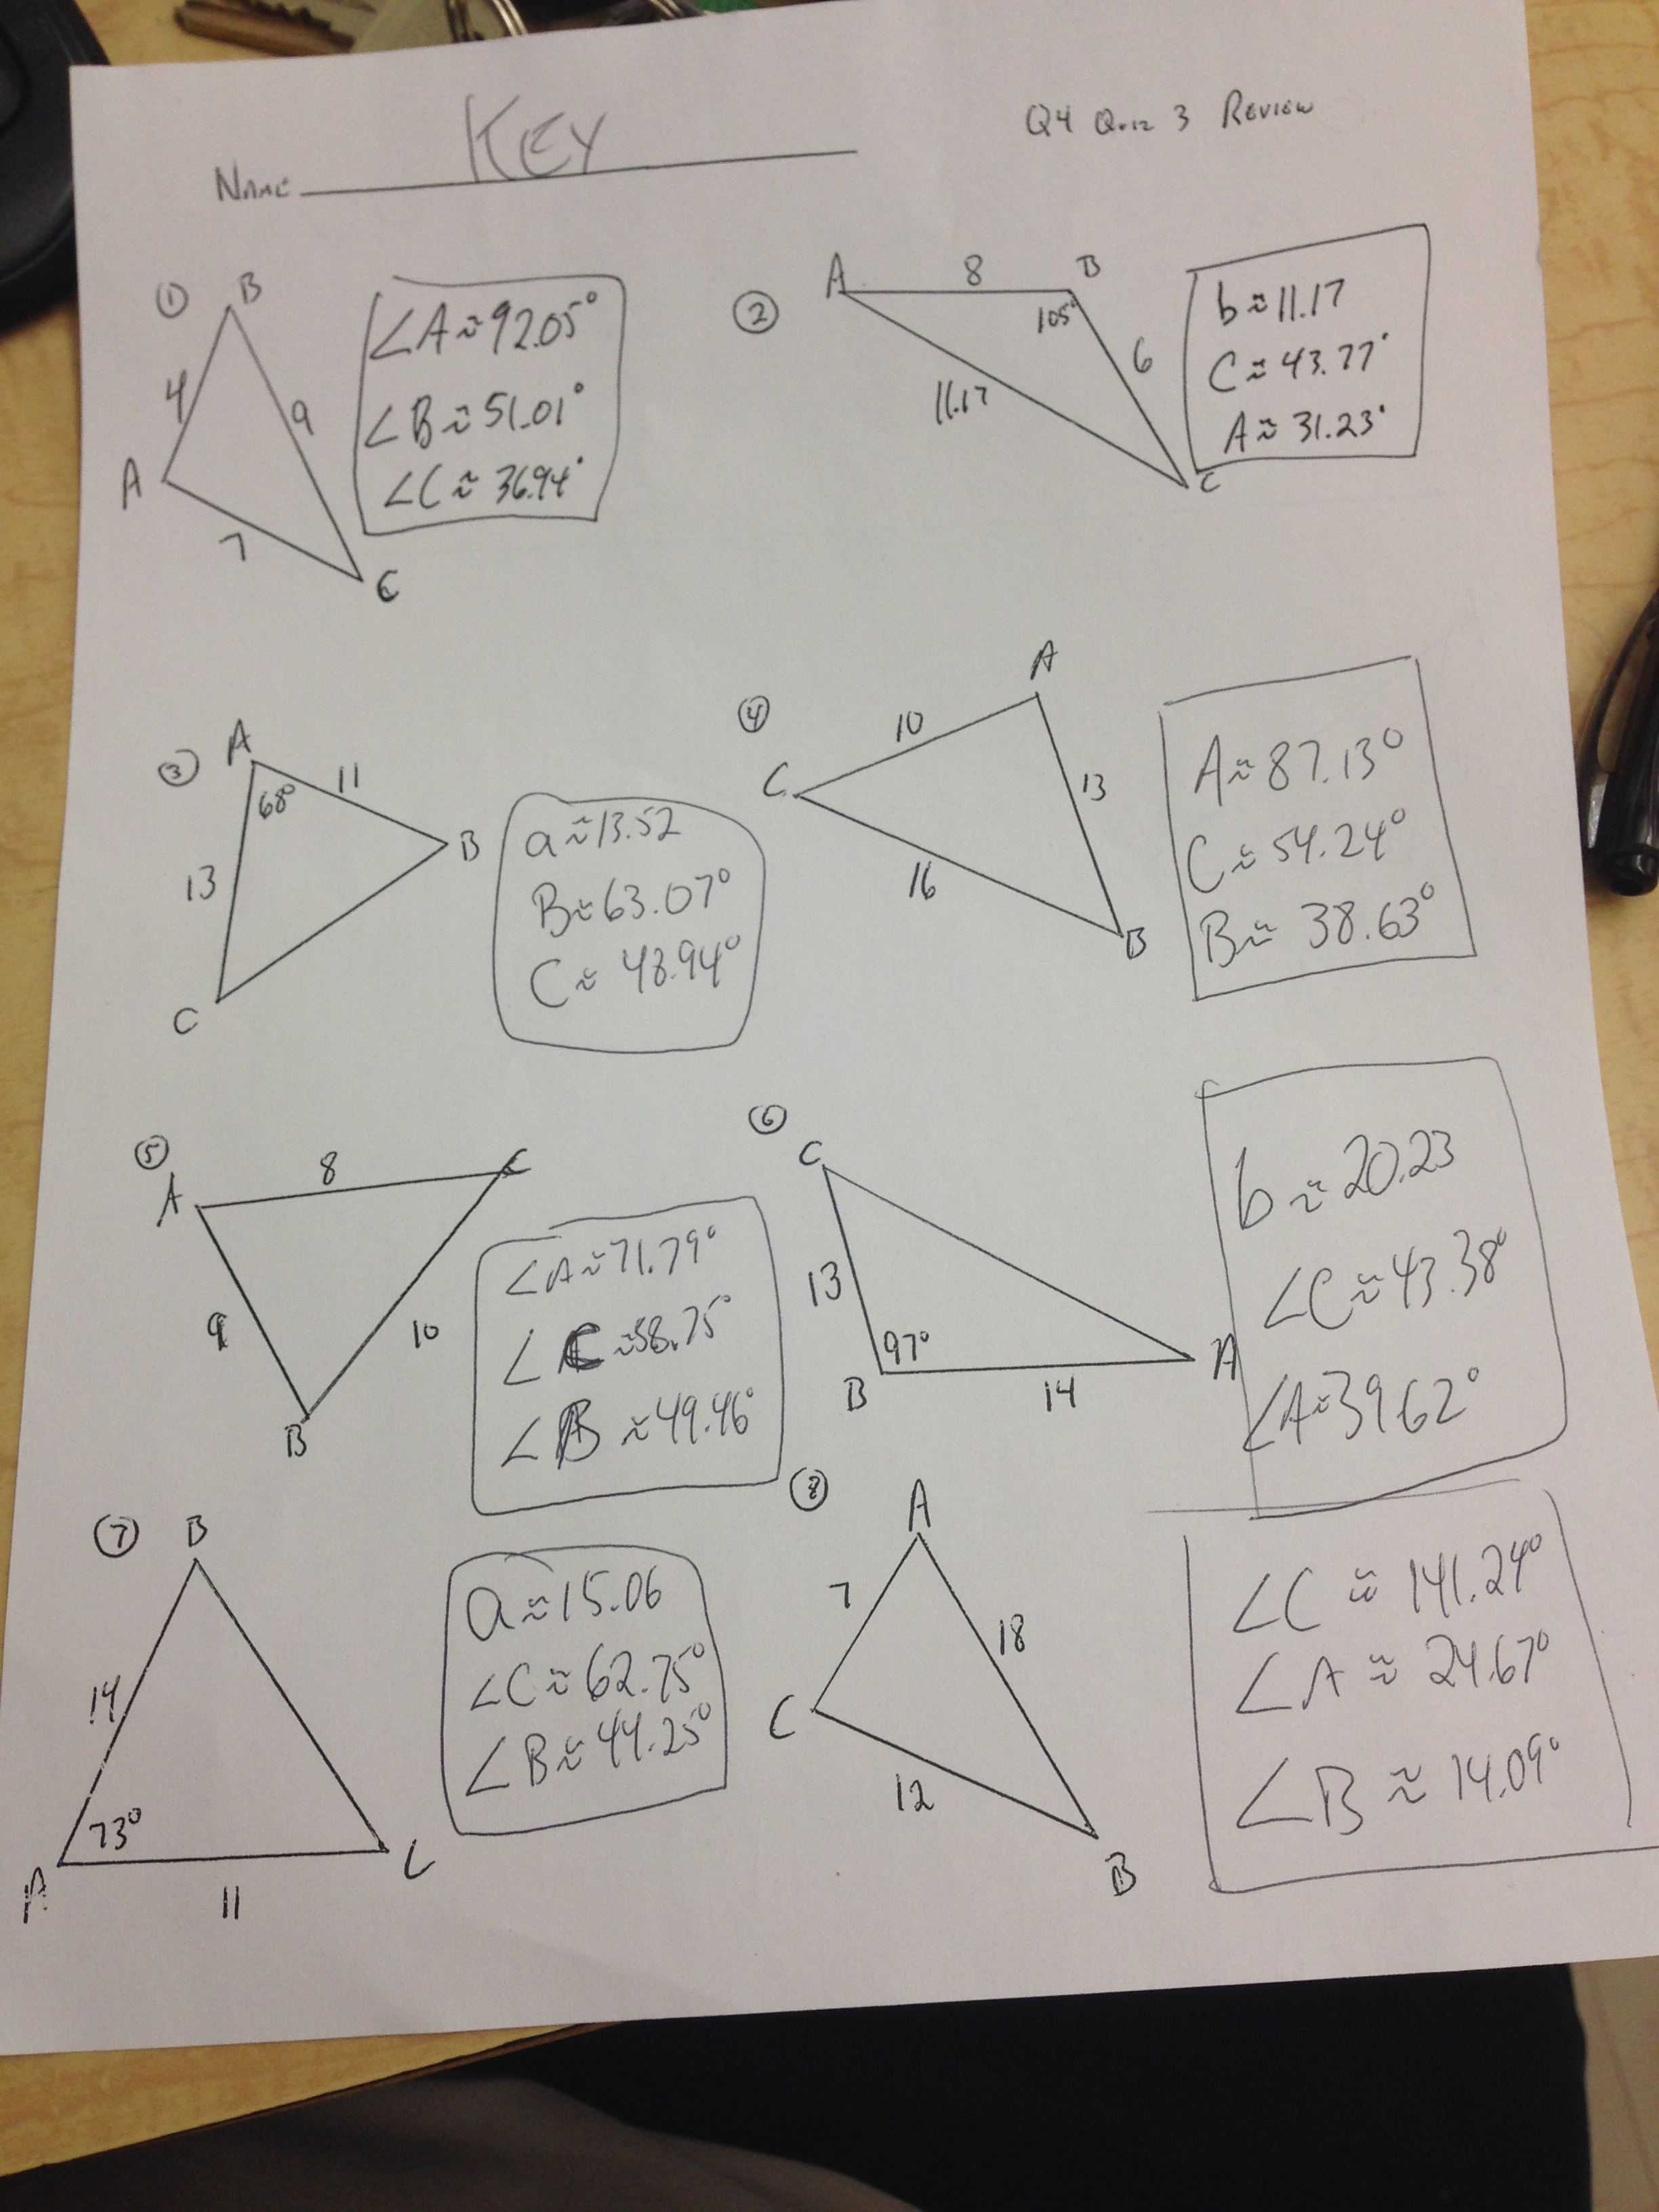 Name KEY
Q4 Quiz 3 Review
①
B
4
9
A
7
C
∠A≈92.05°
∠B≈51.01°
∠C≈36.94°
②
A
8
B
105°
6
11.17
C
b≈11.17
C≈43.77°
A≈31.23°
③
A
11
68°
B
13
C
a≈13.52
B≈63.07°
C≈48.94°
④
A
10
C
13
16
B
A≈87.13°
C≈54.24°
B≈38.63°
⑤
A
8
C
9
10
B
∠A≈71.79°
∠C≈58.75°
∠B≈49.46°
⑥
C
13
97°
B
14
A
b≈20.23
∠C≈43.38°
∠A≈39.62°
⑦
B
14
73°
A
11
C
a≈15.06
∠C≈62.75°
∠B≈44.25°
⑧
A
7
18
C
12
B
∠C≈141.24°
∠A≈24.67°
∠B≈14.09°